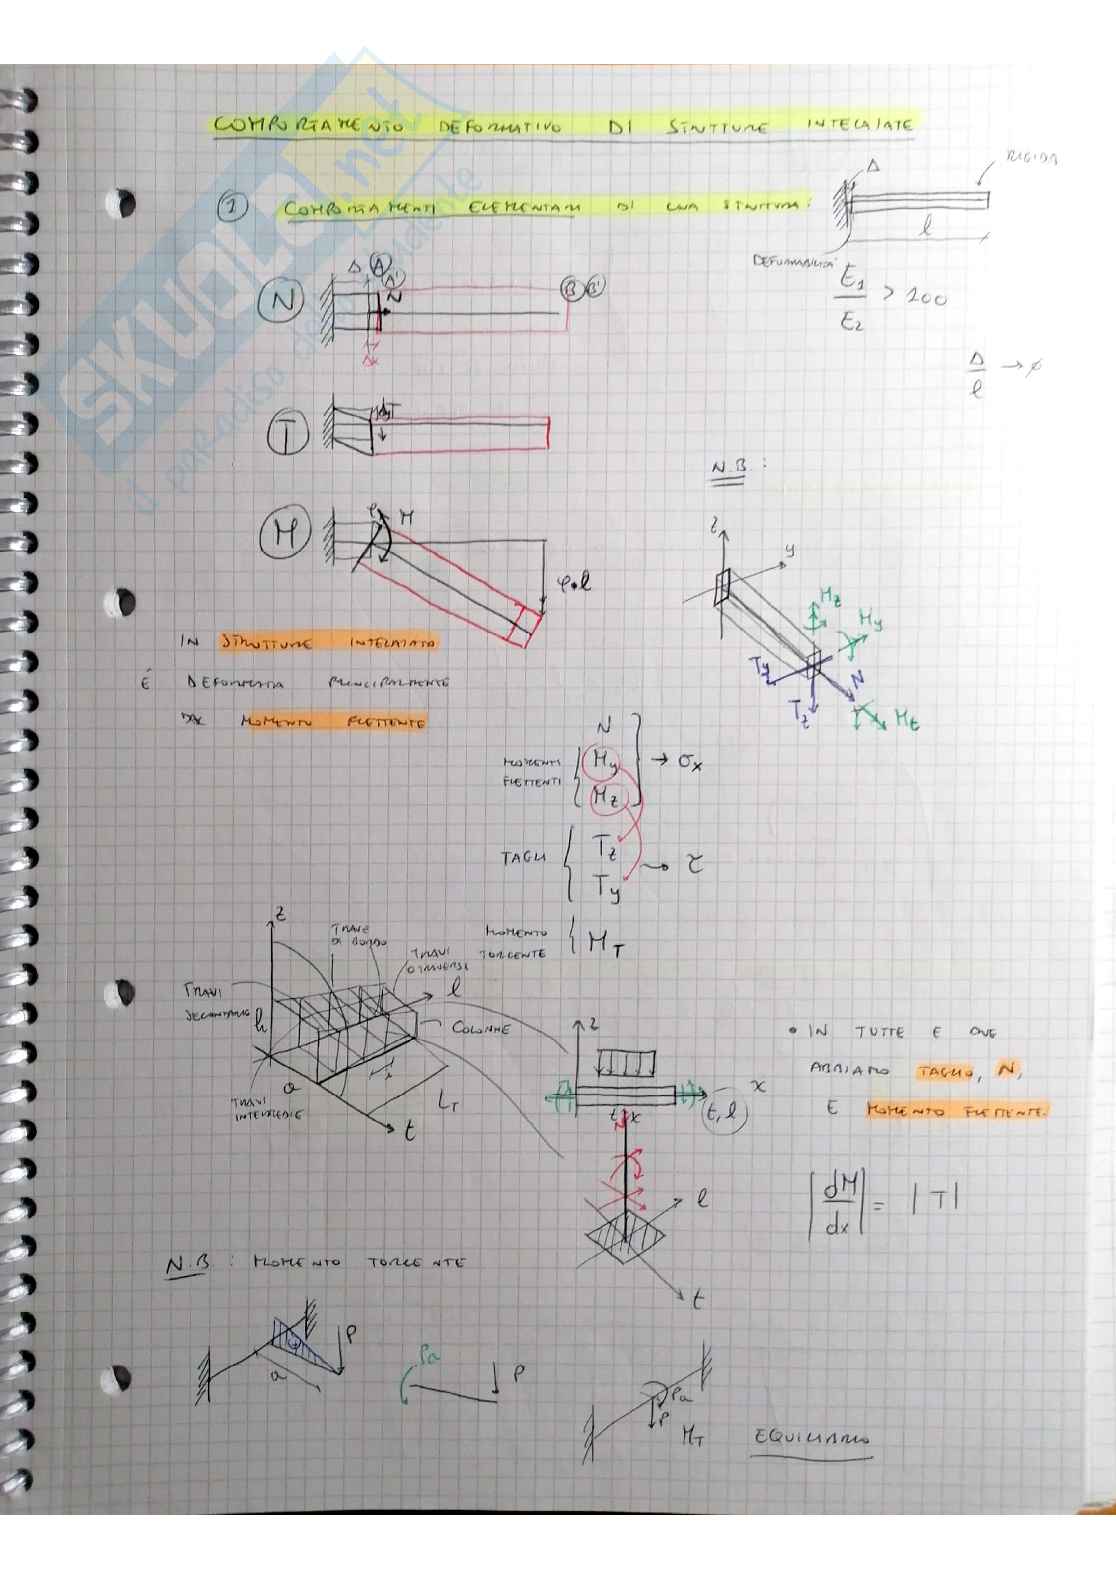 COMPORTAMENTO DEFORMATIVO DI STRUTTURE INTELAIATE
1 COMPORTAMENTI ELEMENTARI DI UNA STRUTTURA:
Δ
RIGIDA
l
DEFORMABILITÀ
E1/E2 > 200
Δ/l → ø
N
Δ A A' N B B'
T
T
M
φ M
φ·l
IN STRUTTURE INTELAIATO
É DEFORMATA PRINCIPALMENTE
DAL MOMENTO FLETTENTE
N.B:
z
y
Mz
My
Ty
N
Tz
Mt
MOMENTI FLETTENTI
N
My
Mz
→ σx
TAGLI
Tz
Ty
→ τ
MOMENTO TORCENTE
MT
z
TRAVE DI BORDO
TRAVI O TRAVERSI
TRAVI SECONDARIE
h
l
COLONNE
a
i
TRAVI INTERMEDIE
LT
t
z
x
(t, l)
N
l
t
• IN TUTTE E DUE
ABBIAMO TAGLIO, N,
E MOMENTO FLETTENTE.
|dM/dx| = |T|
N.B: MOMENTO TORCENTE
P
a
Pa
P
Pa
P
MT
EQUILIBRIO
SKUOLA.net
il paradiso dello studente